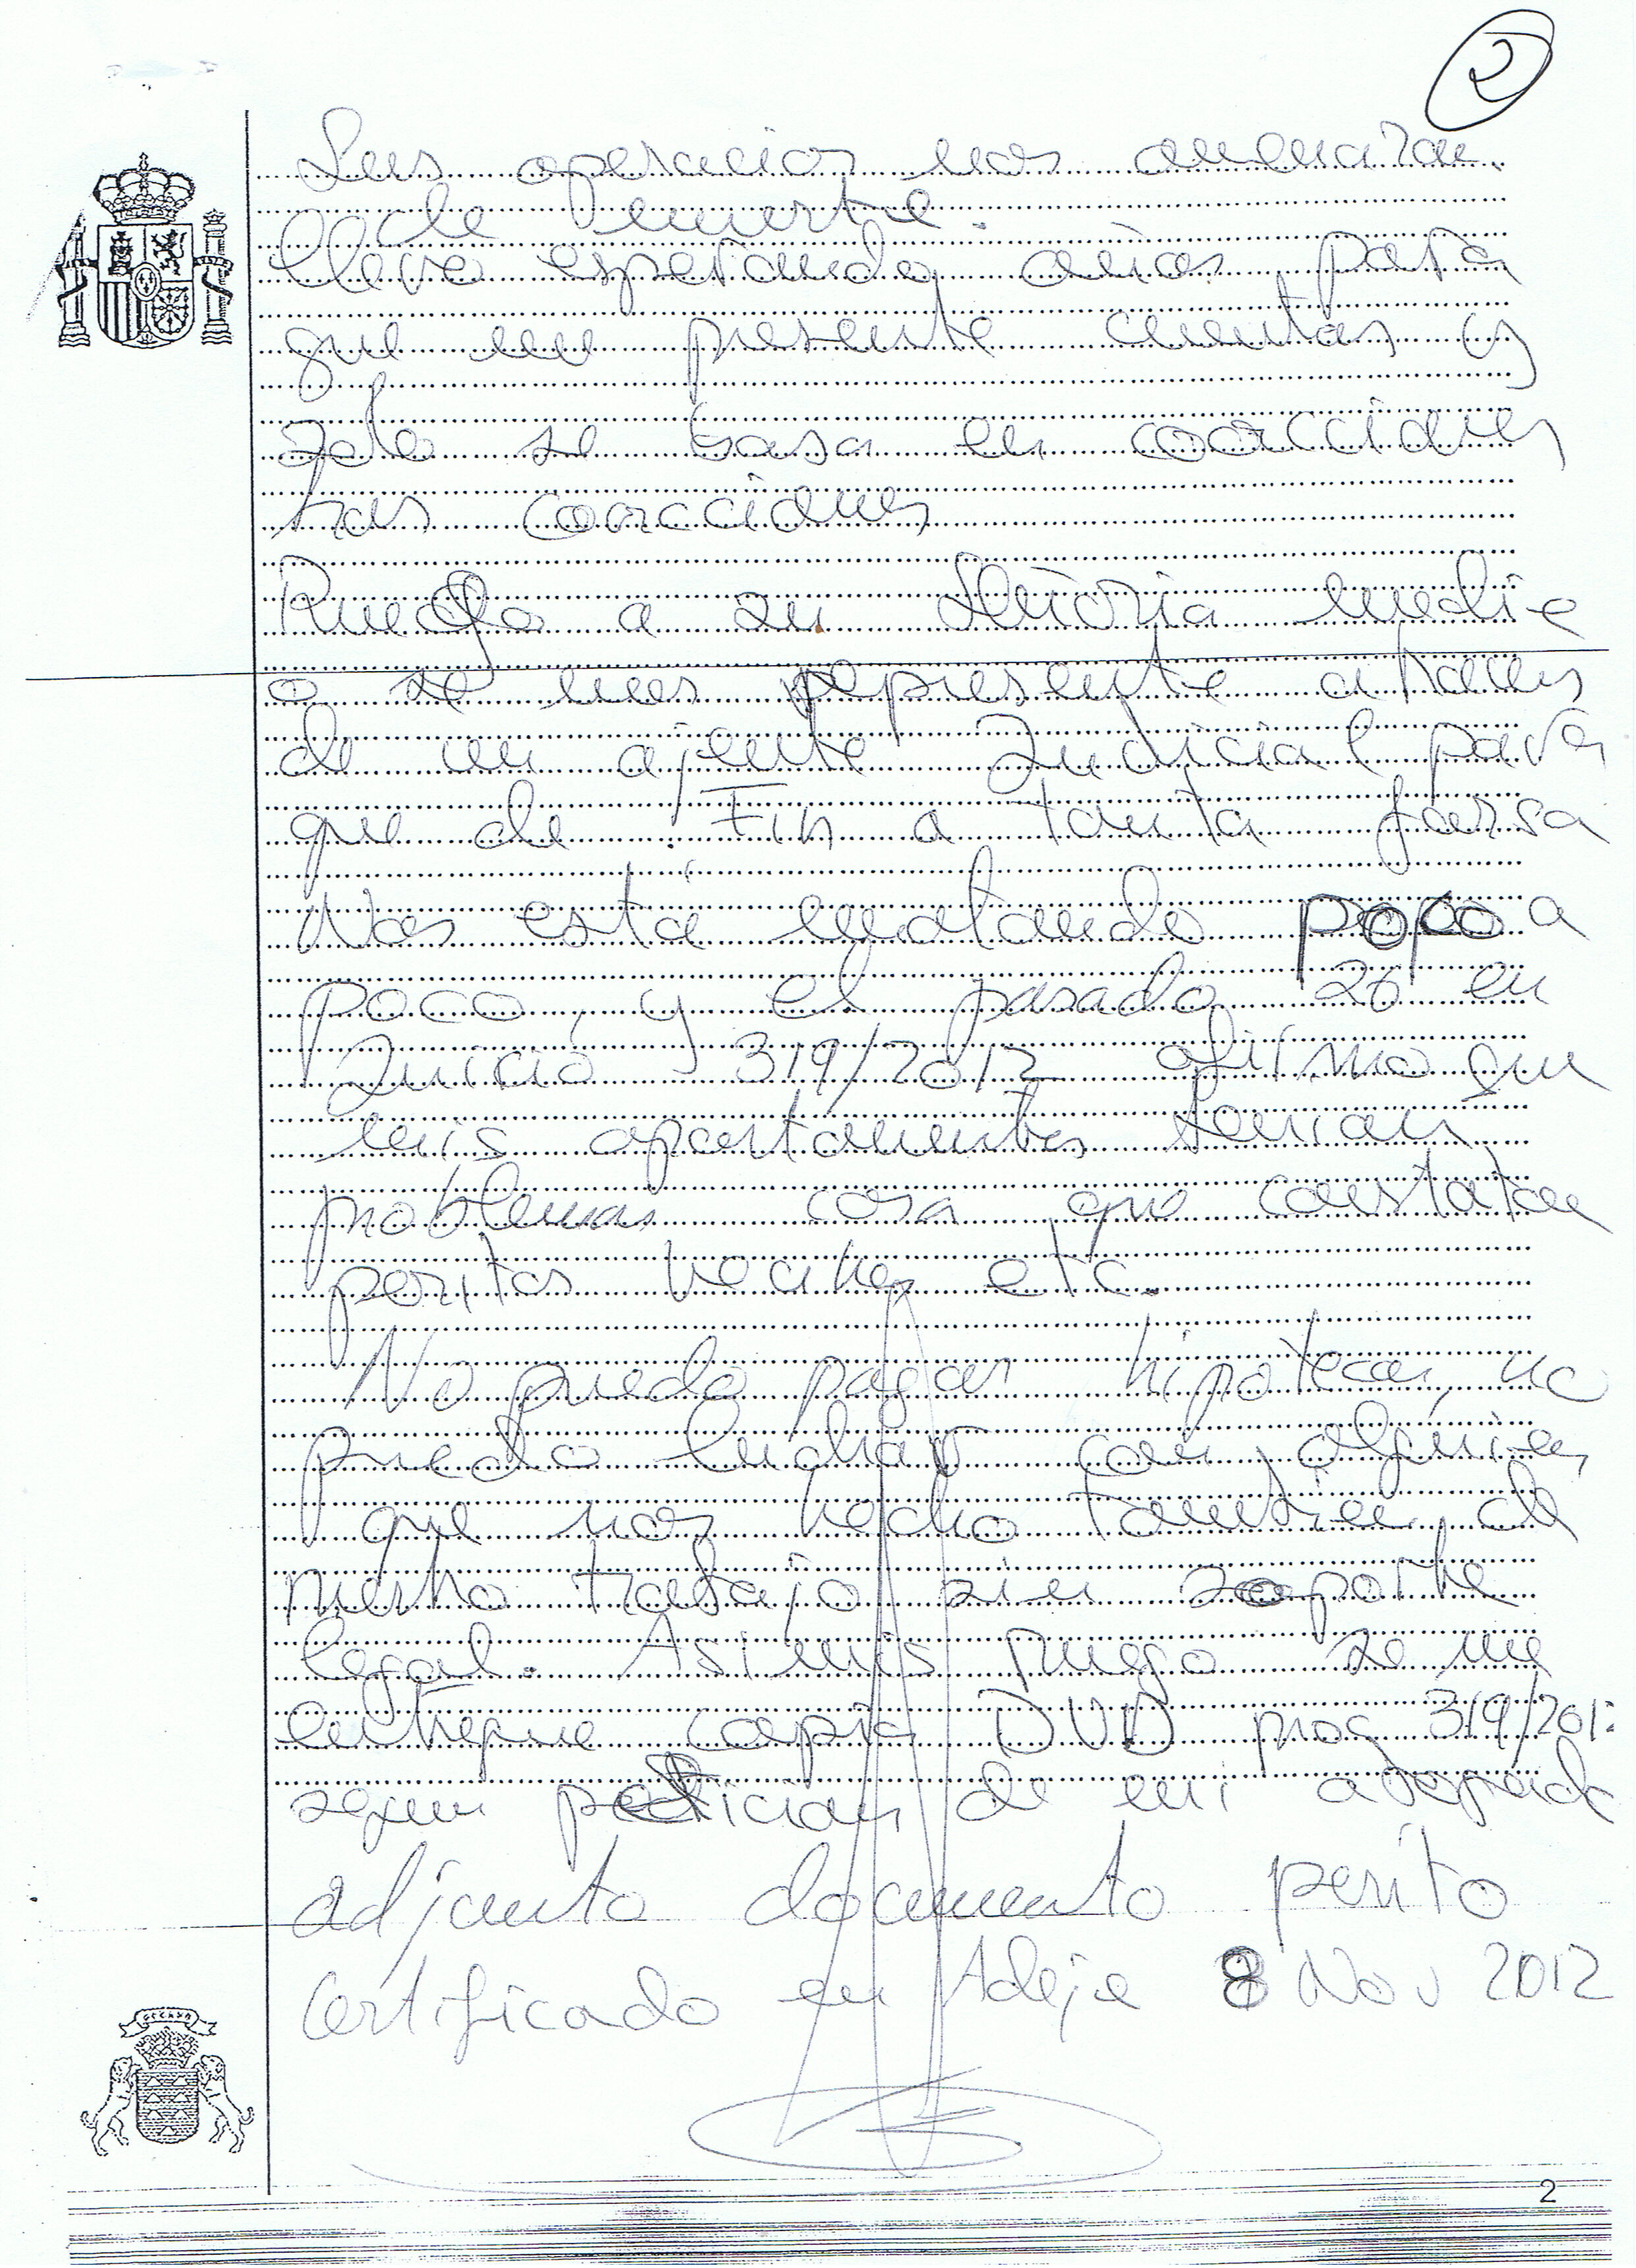 2
Sus operarios nos amenazan
de muerte.
llevo esperando años para
que me presente cuentas y
solo se basa en coacciones
tras coacciones
Ruego a su Señoria medie
o se nos represente atraves
de un ajente Judicial para
que de Fin a tanta farsa
Nos está matando poco a
poco, y el pasado 26 en
Juicio 319/2012 afirmo que
mis apartamentos tenian
problemas cosa que constatan
peritos vecinos etc.
No puedo pagar hipotecas, no
puedo luchar con alguien
que nos hecho tambien de
nuestro trabajo sin soporte
legal. Asi mis ruego se me
entregue copia DVD proc 319/201
segun peticion de mi abogado
adjunto documento perito
Certificado en Adeje 8 Nov 2012
2